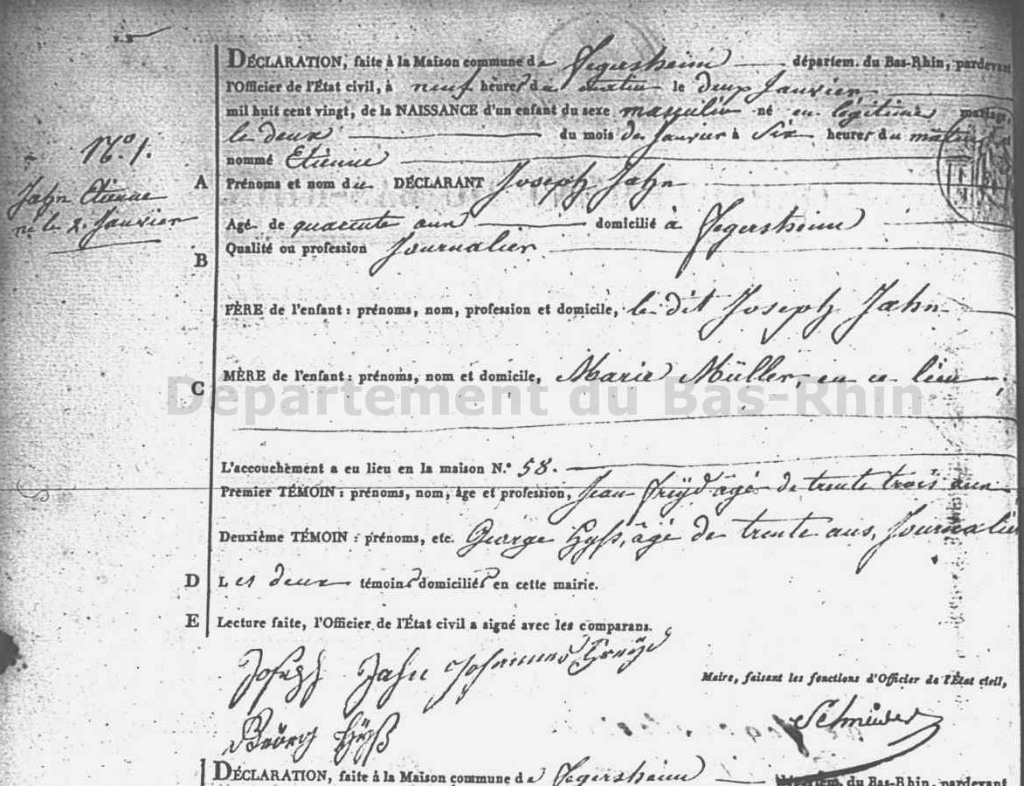 DÉCLARATION, faite à la Maison commune de Fegersheim départem. du Bas-Rhin, pardevant
l'Officier de l'État civil, à neuf heures du matin le deux Janvier
mil huit cent vingt, de la NAISSANCE d'un enfant du sexe masculin né en légitime mariage,
le deux du mois de Janvier à Six heures du matin
nommé Etienne
N.º 1.
Jahn Etienne
né le 2. Janvier
A Prénoms et nom du DÉCLARANT Joseph Jahn
Agé de quarante ans domicilié à Fegersheim
B Qualité ou profession Journalier
PÈRE de l'enfant : prénoms, nom, profession et domicile, le dit Joseph Jahn
C MÈRE de l'enfant : prénoms, nom et domicile, Marie Müller, en ce lieu
Département du Bas-Rhin
L'accouchement a eu lieu en la maison N.º 58.
Premier TÉMOIN : prénoms, nom, âge et profession, Jean Freÿd âgé de trente trois ans
Deuxième TÉMOIN : prénoms, etc. George Hyß, âgé de trente ans, Journalier
D Les deux témoins domiciliés en cette mairie.
E Lecture faite, l'Officier de l'État civil a signé avec les comparans.
Joseph Jahn Johannes Freÿd
Maire, faisant les fonctions d'Officier de l'État civil,
Georg Hÿß
DÉCLARATION, faite à la Maison commune de Fegersheim départem. du Bas-Rhin, pardevant